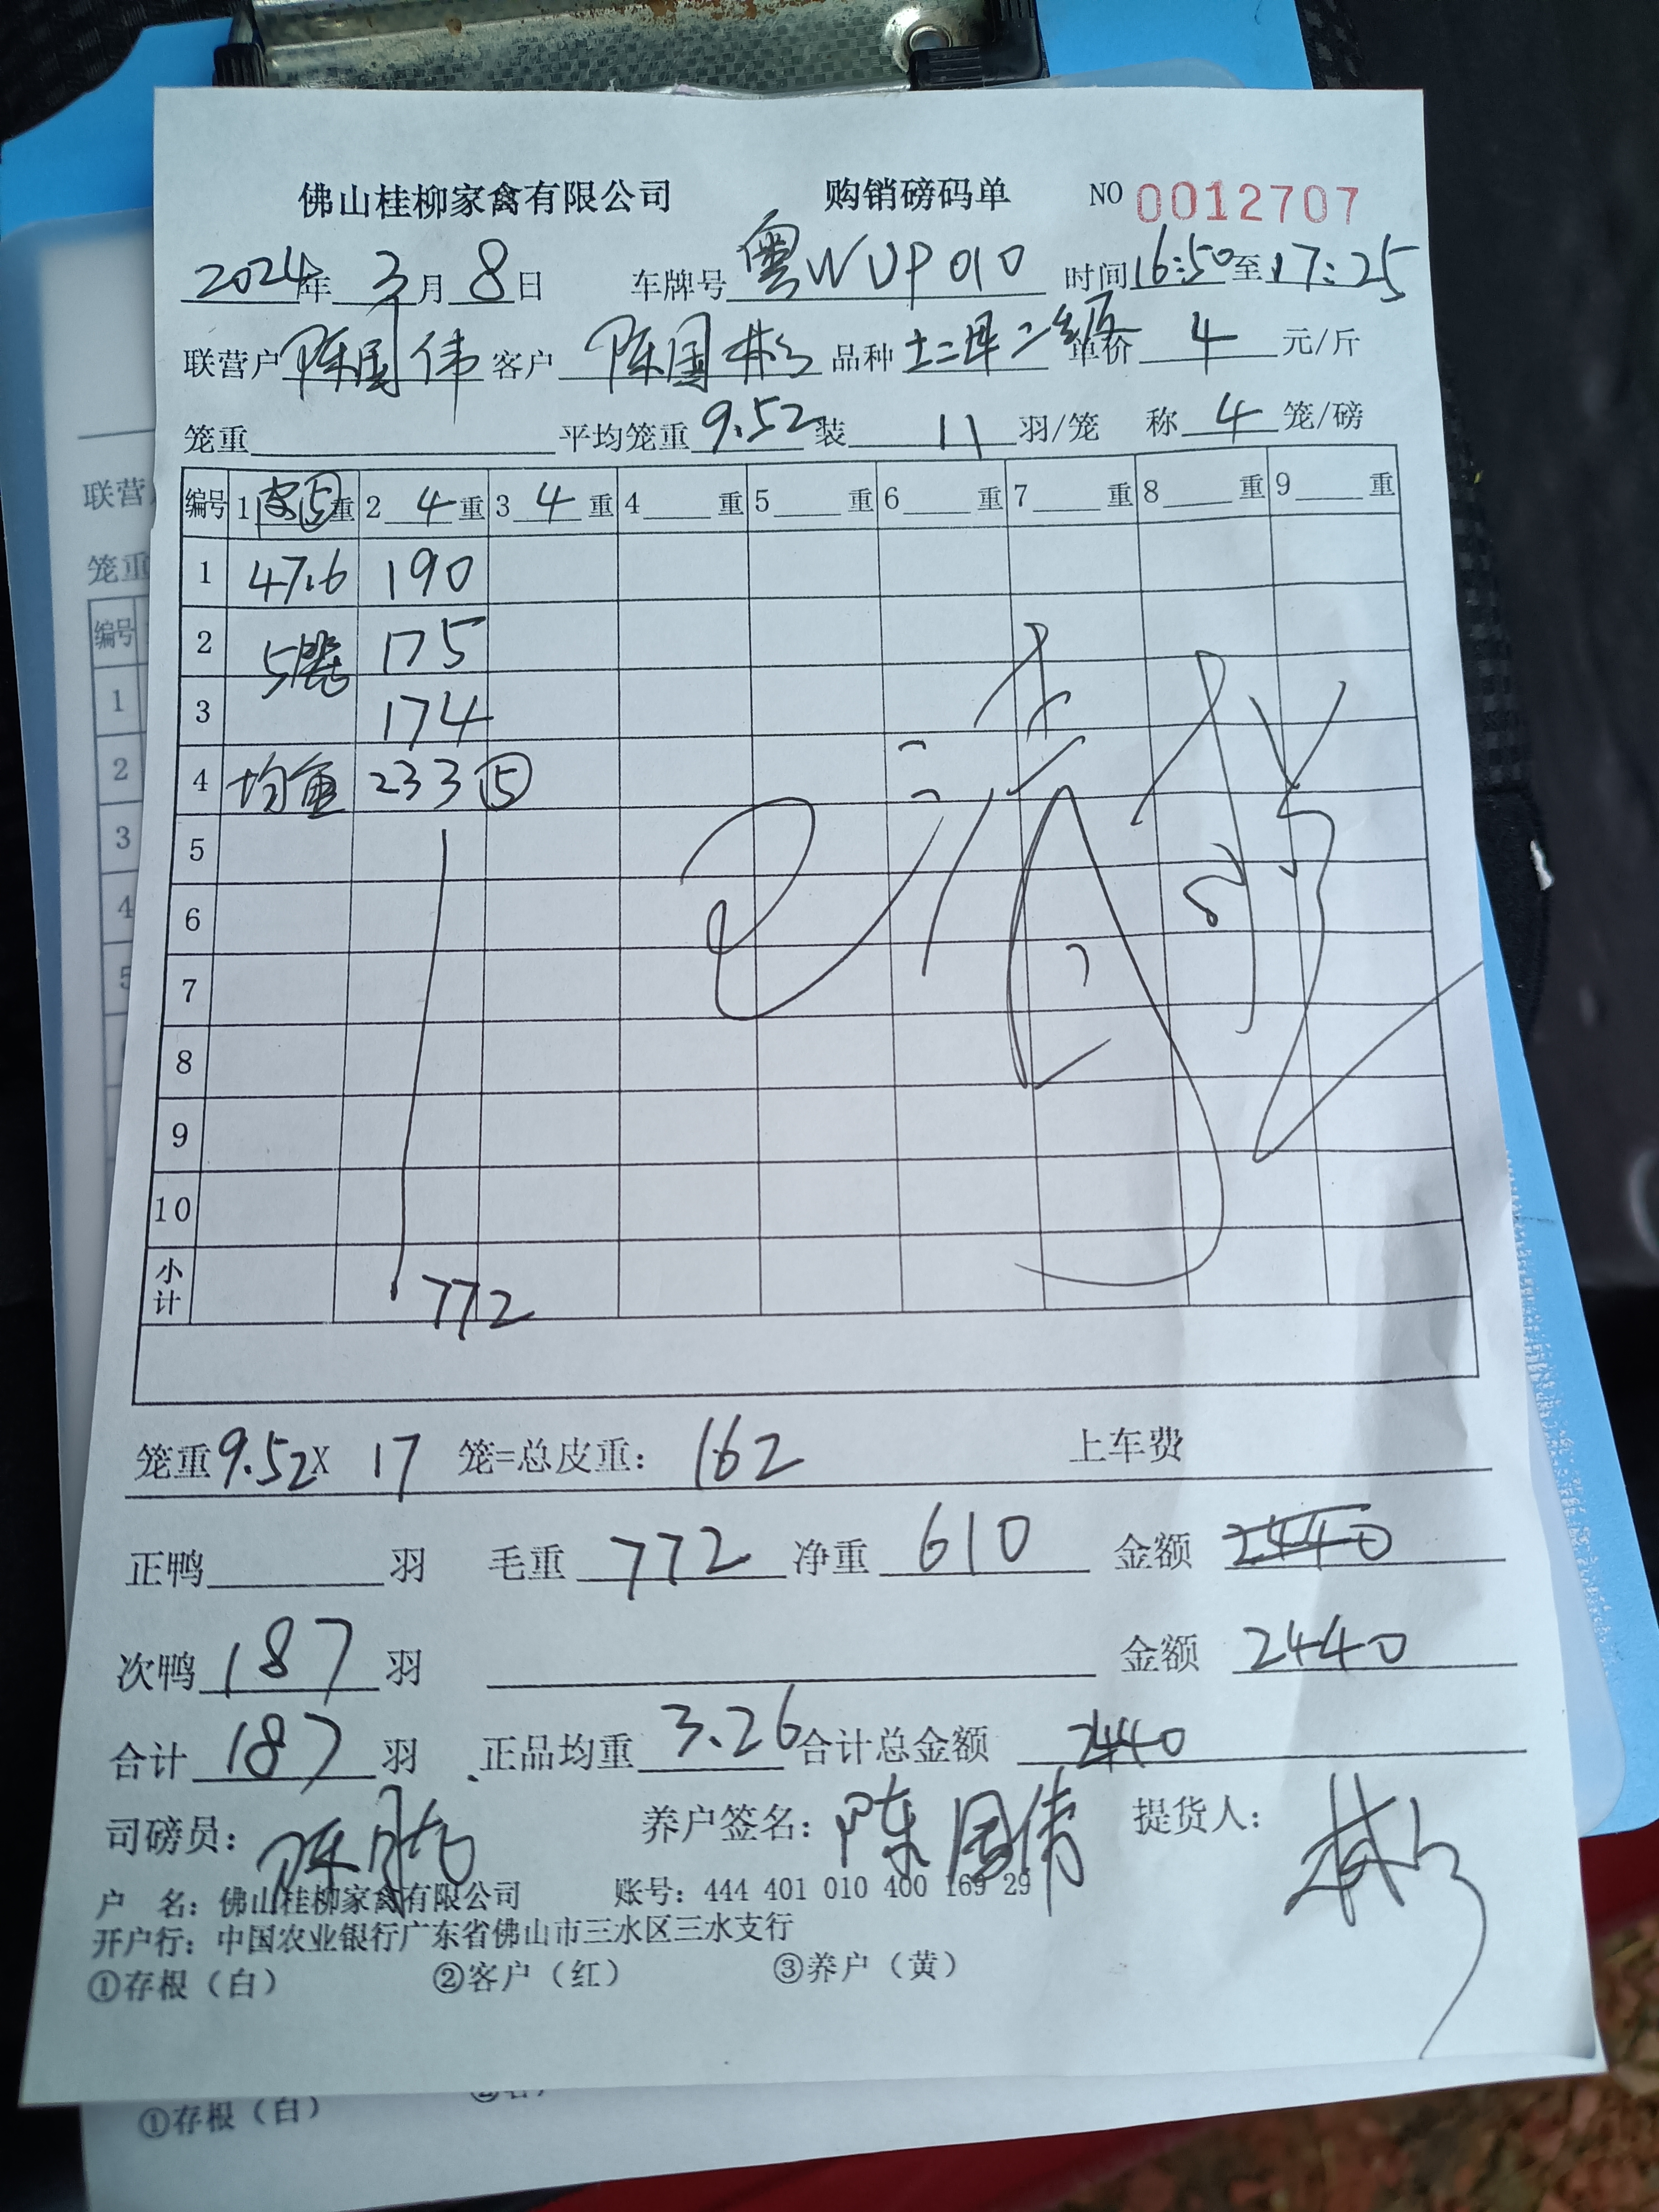 佛山桂柳家禽有限公司 购销磅码单 NO 0012707
2024年 3月 8日 车牌号 粤WUP010 时间16:50至17:25
联营户 陈国伟 客户 陈国彬 品种 土二早二级 单价 4 元/斤
笼重 平均笼重 9.52 装 11 羽/笼 称 4 笼/磅
编号 1 ⑤重 2 4 重 3 4 重 4 重 5 重 6 重 7 重 8 重 9 重
1 47.6 190
2 5笼 175
3 174
4 均重 233 ⑤
5
6
7
8
9
10
小计 772
笼重9.52X 17 笼=总皮重: 162 上车费
正鸭 羽 毛重 772 净重 610 金额 2440
次鸭 187 羽 金额 2440
合计 187 羽 正品均重 3.26 合计总金额 2440
司磅员: 养户签名: 陈国伟 提货人: 彬
户 名: 佛山桂柳家禽有限公司 账号: 444 401 010 400 169 29
开户行: 中国农业银行广东省佛山市三水区三水支行
①存根（白） ②客户（红） ③养户（黄）
联营
笼重
编号
1
2
3
4
5
①存根（白）